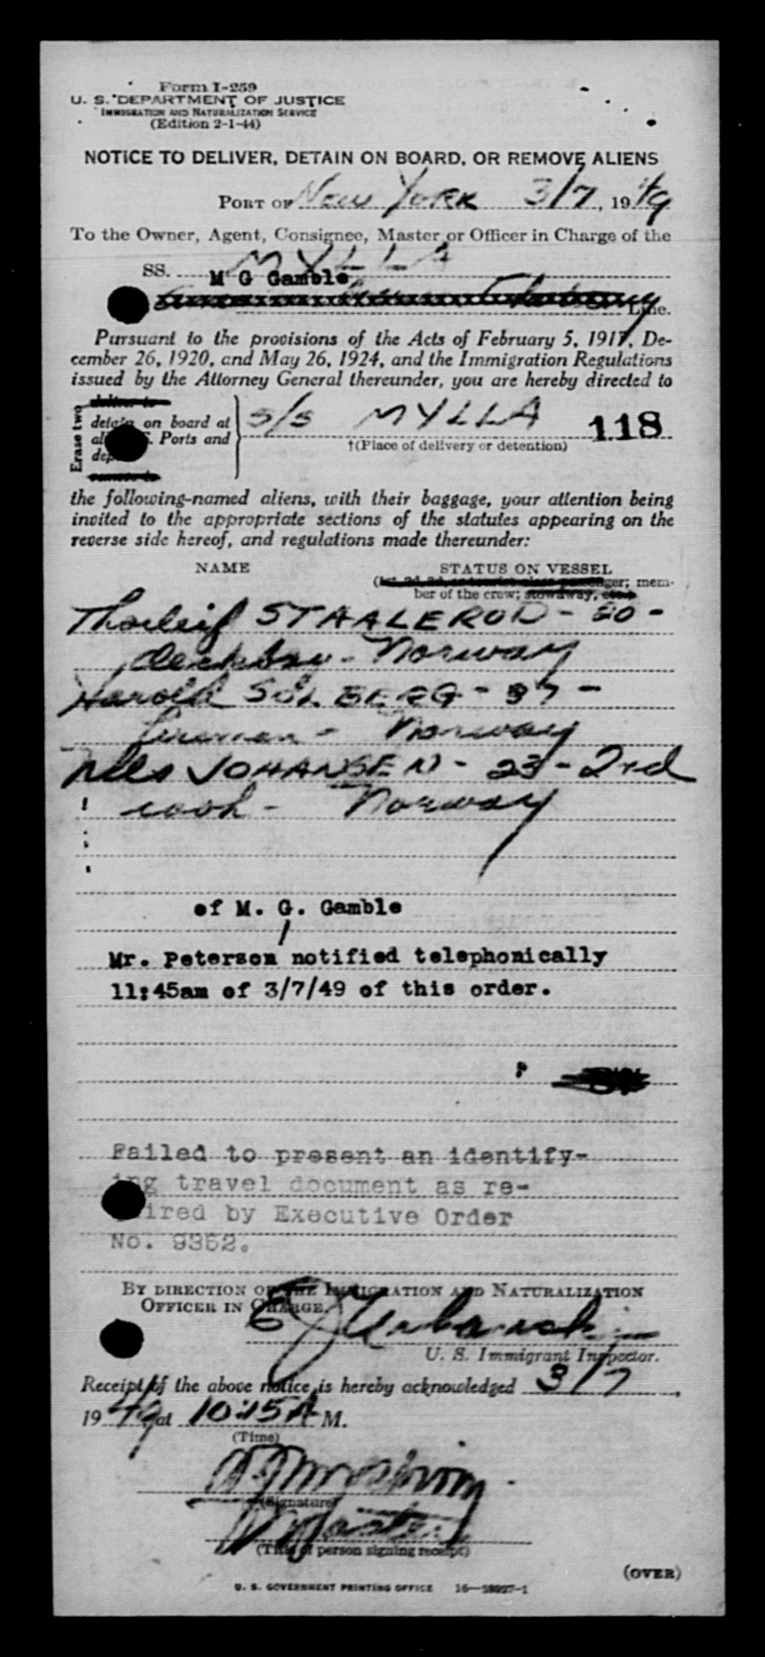 Form I-259
U. S. DEPARTMENT OF JUSTICE
IMMIGRATION AND NATURALIZATION SERVICE
(Edition 2-1-44)
NOTICE TO DELIVER, DETAIN ON BOARD, OR REMOVE ALIENS
PORT OF New York 3/7, 1949
To the Owner, Agent, Consignee, Master or Officer in Charge of the
SS. MYLLA
M G Gamble
Line.
Pursuant to the provisions of the Acts of February 5, 1917, De-
cember 26, 1920, and May 26, 1924, and the Immigration Regulations
issued by the Attorney General thereunder, you are hereby directed to
Erase two
detain on board at
Ports and
S/S MYLLA 118
†(Place of delivery or detention)
the following-named aliens, with their baggage, your attention being
invited to the appropriate sections of the statutes appearing on the
reverse side hereof, and regulations made thereunder:
NAME STATUS ON VESSEL
mem-
ber of the crew; stowaway,
Thorleif STAALEROD - 20 -
deckboy - Norway
Harold SOLBERG - 37 -
fireman - Norway
Nils JOHANSEN - 23 - 2nd
cook - Norway
of M. G. Gamble
Mr. Peterson notified telephonically
11:45am of 3/7/49 of this order.
Failed to present an identify-
ing travel document as re-
ired by Executive Order
No. 9352.
BY DIRECTION OF THE IMMIGRATION AND NATURALIZATION
OFFICER IN CHARGE.
U. S. Immigrant Inspector.
Receipt of the above notice is hereby acknowledged 3/7,
1949 at 10:15 A M.
(Time)
(Signature)
Master
(Title of person signing receipt)
(OVER)
U. S. GOVERNMENT PRINTING OFFICE